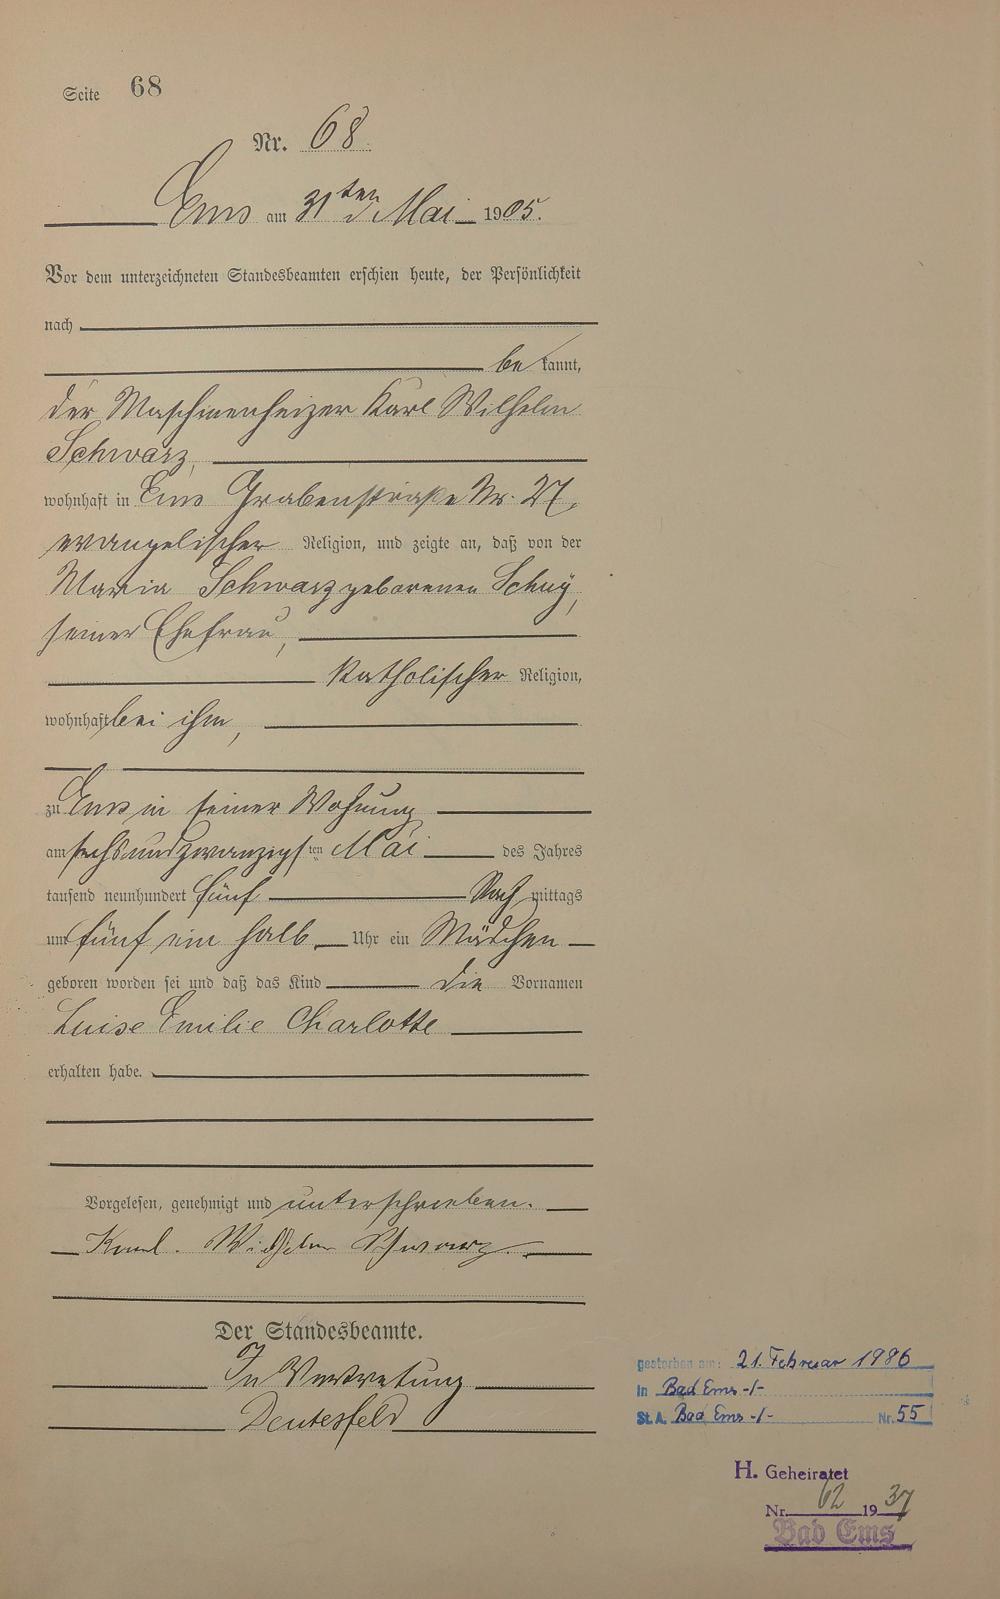 Seite 68
Nr. 68
Ems am 31ten Mai 1905.
Vor dem unterzeichneten Standesbeamten erschien heute, der Persönlichkeit
nach
bekannt,
der Maschinenheizer Karl Wilhelm
Schwarz,
wohnhaft in Ems Grabenstraße Nr. 27,
evangelischer Religion, und zeigte an, daß von der
Maria Schwarz geborenen Schuy,
seiner Ehefrau,
katholischer Religion,
wohnhaft bei ihm,
zu Ems in seiner Wohnung
am sechsundzwanzigsten Mai des Jahres
tausend neunhundert fünf Nachmittags
um fünf ein halb Uhr ein Mädchen
geboren worden sei und daß das Kind die Vornamen
Luise Emilie Charlotte
erhalten habe.
Vorgelesen, genehmigt und unterschrieben.
Karl Wilhelm Schwarz
Der Standesbeamte.
In Vertretung
Deutesfeld
gestorben am: 21. Februar 1986
in Bad Ems -/-
St.A. Bad Ems -/- Nr. 55
H. Geheiratet
Nr. 62 1937
Bad Ems